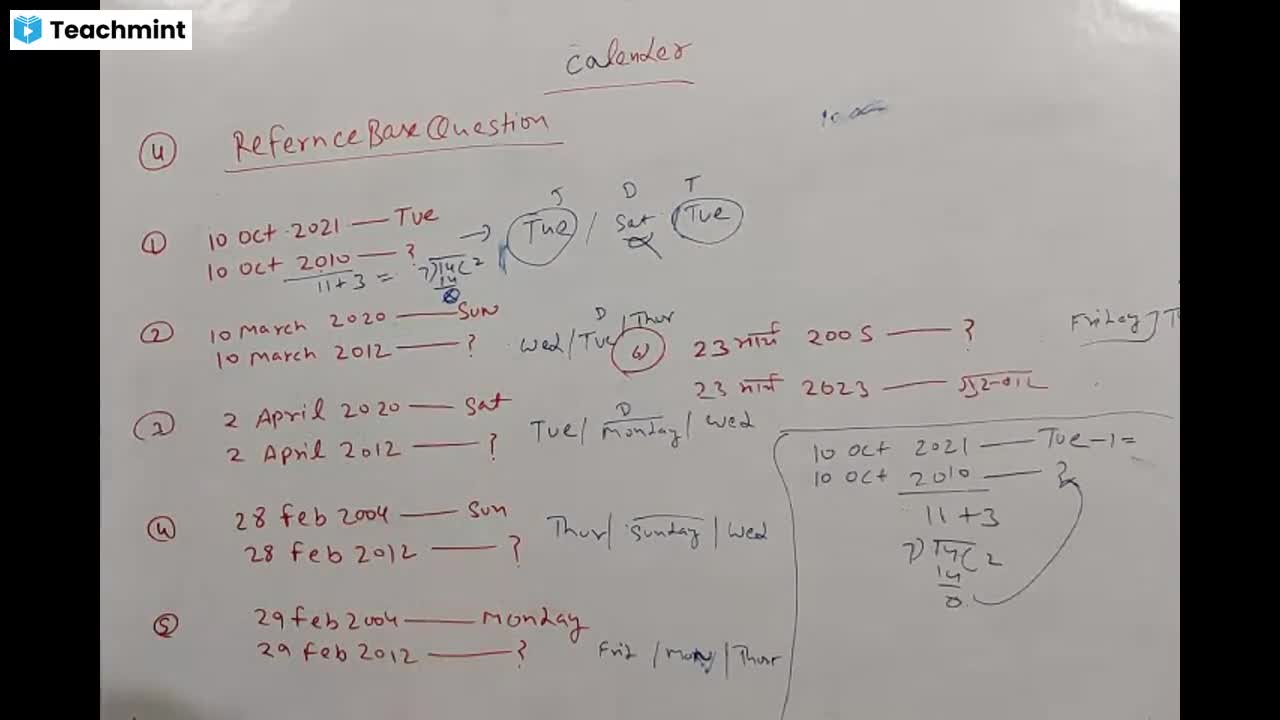 Teachmint
Calender
4 Refernce Base Question
J D T
1 10 Oct 2021 — Tue → Tue / Sat Tue
10 Oct 2010 — ?
11+3 = 7)14(2
14
0
2 10 March 2020 — Sun
10 March 2012 — ? Wed / Tue / Thur
D
W
23 मार्च 2005 — ?
Friday
23 मार्च 2023 —
2 April 2020 — Sat
2 April 2012 — ? Tue / Monday / Wed
D
4 28 Feb 2004 — Sun
28 Feb 2012 — ? Thur / Sunday / Wed
5 29 Feb 2004 — Monday
29 Feb 2012 — ? Frid / / Thur
10 Oct 2021 — Tue-1=
10 Oct 2010 — ?
11+3
7)14(2
14
0